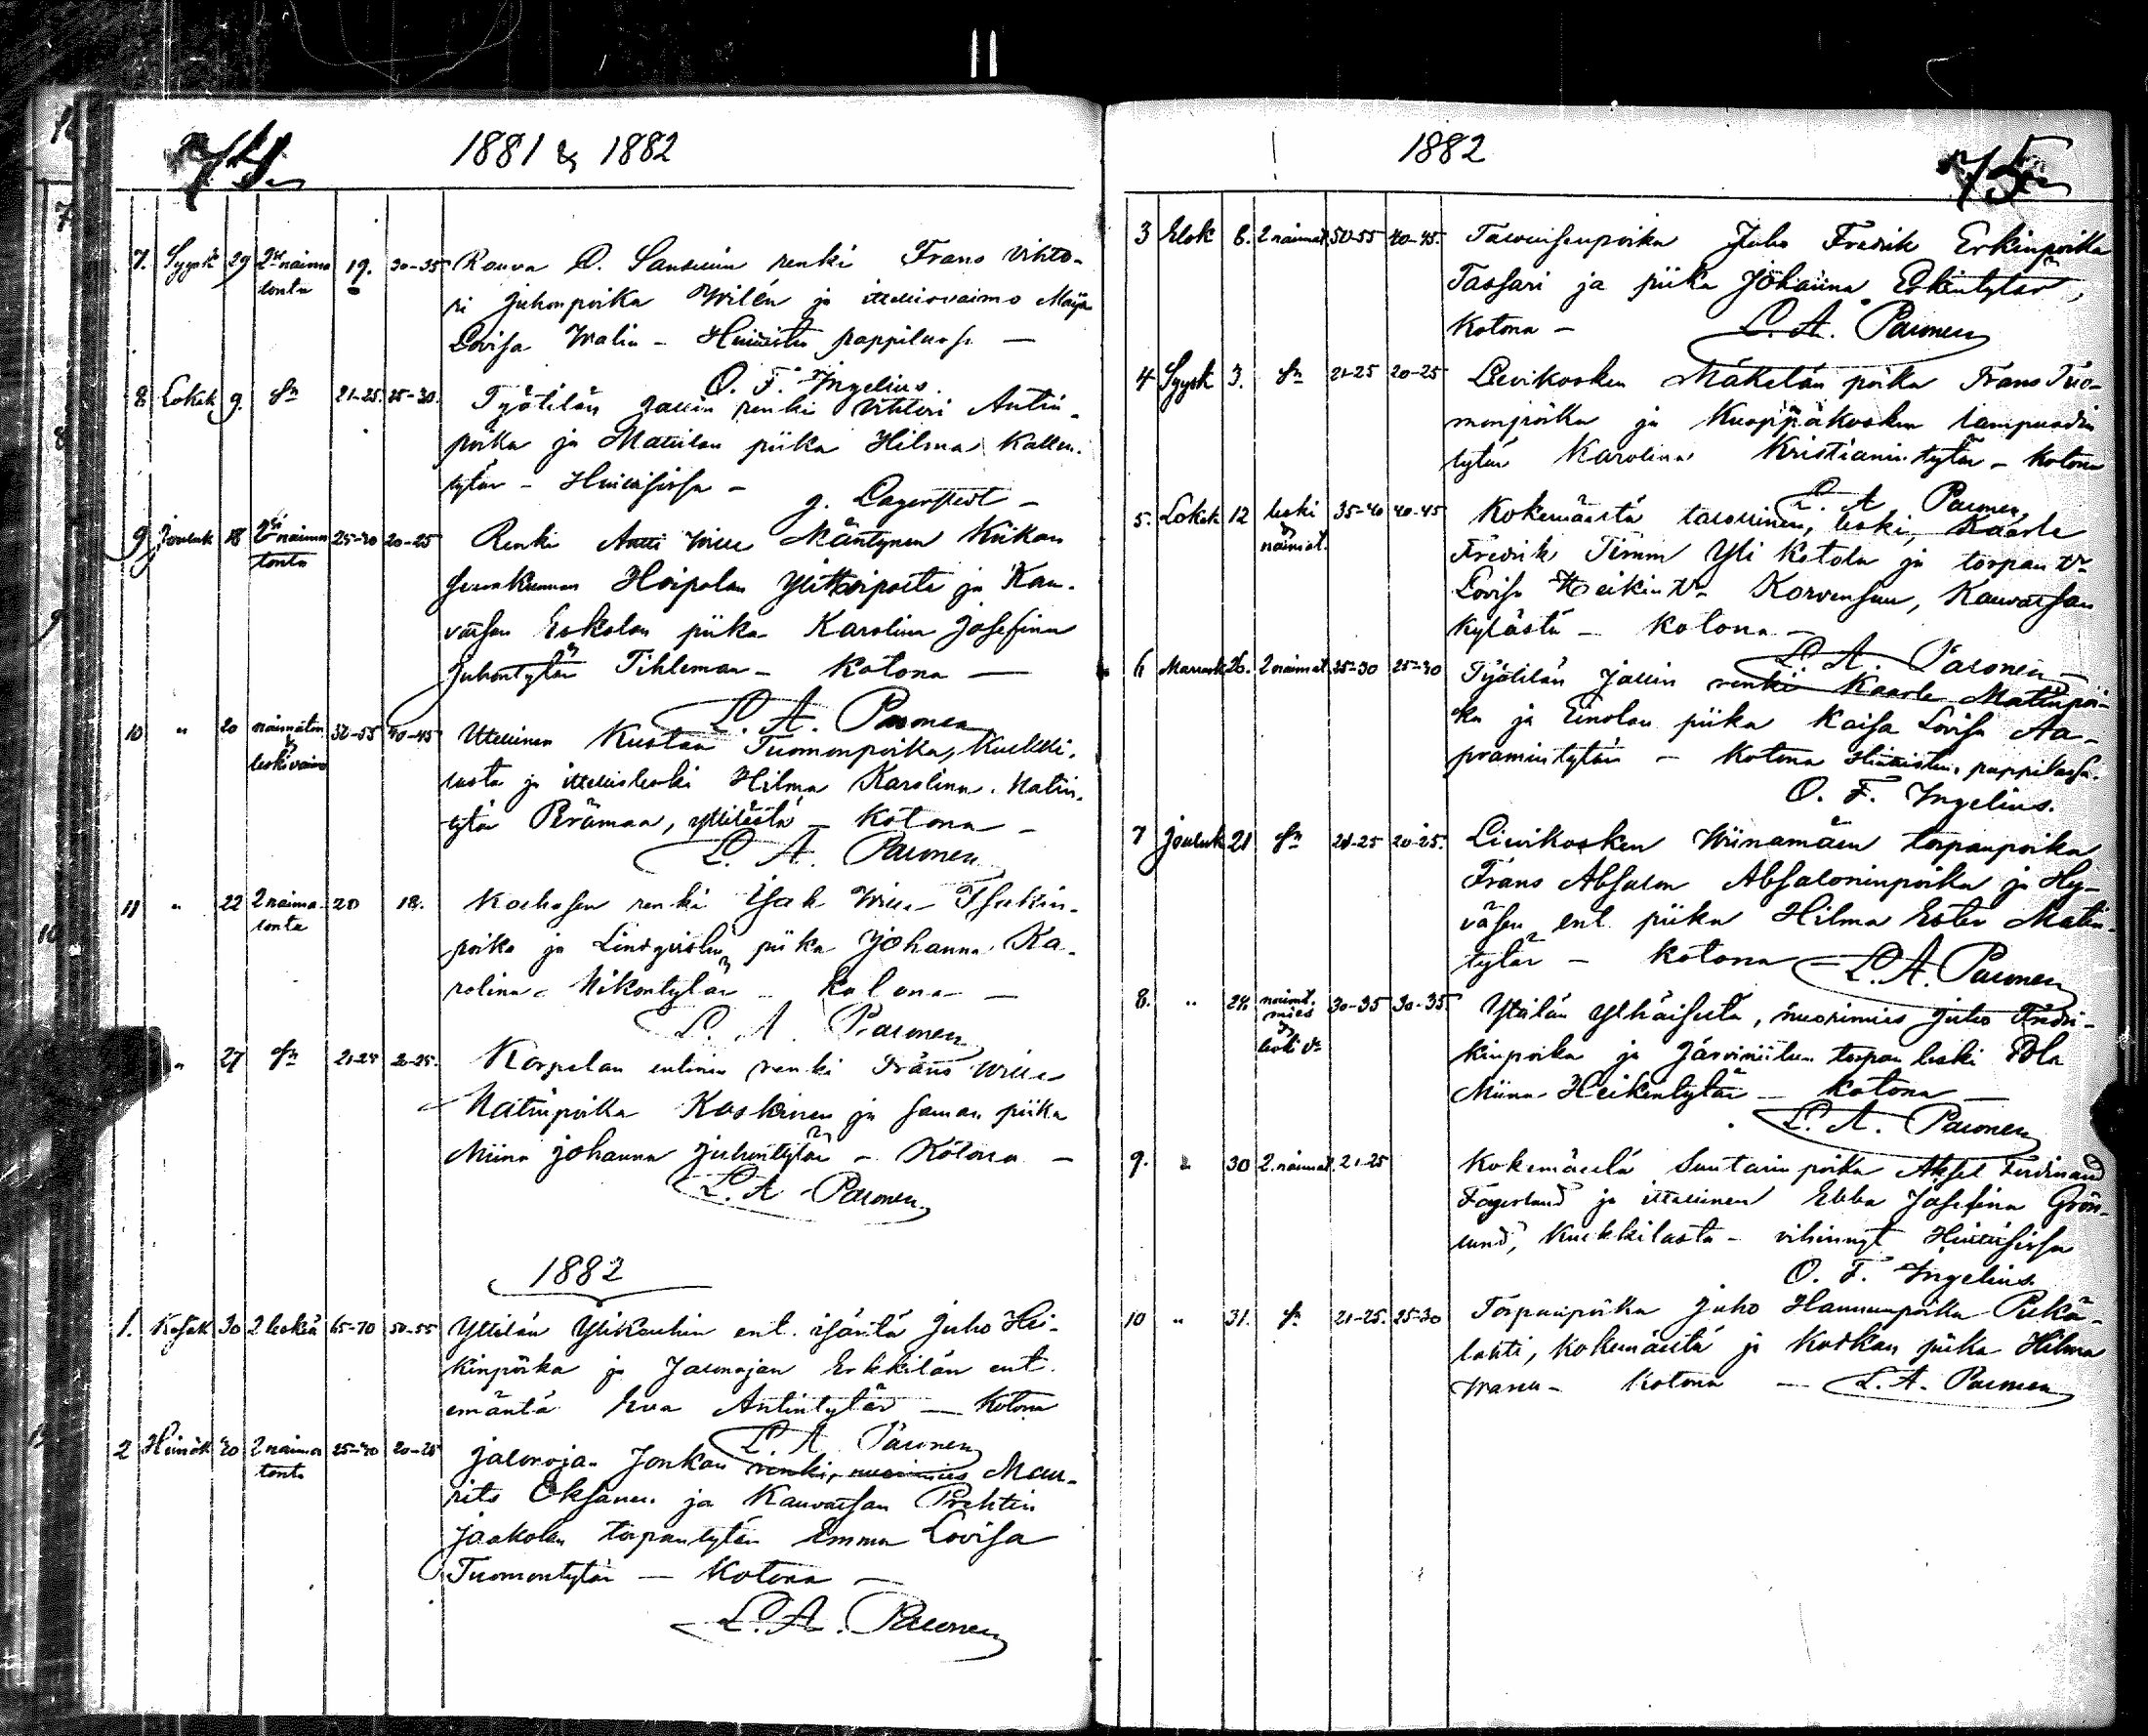 74.
1881 & 1882
7. Syysk 29 2si naima 19. 30-35 Rouva renki Frans Vihto-
tonta ri Juhonpoika Wilén ja itsellisvaimo Maija
Lovisa Walin – Huittisten pappilassa –
O. F. Ingelius.
8 Lokak 9. sn 21-25. 25-30. Työtilän Jallin renki Vihtori Antin-
poika ja Mattilan piika Hilma Kallen-
tytär – Huittisissa –
g. Lagerstedt –
9 Jouluk 18 2si naima 25-30 20-25 Renki Antti Wille Mäntynen Kiikan
tonta seurakunnan Hoipolan ja Kau-
vatsan Eskolan piika Karolina Josefina
Juhontytär Tihleman – Kotona –
L. A. Paronen
10 " 20 naimatoin 50-55 40-45 Itsellinen Kustaa Tuomonpoika, Kuckki-
& leskivaimo lasta ja itsellisleski Hilma Karolina Matin-
tytär Perämaa, yttilästä – Kotona –
L. A. Paronen
11 " 22 2 naima- 20 18. renki Isak Wille Isakin-
tonta poika ja Lindqvistin piika Johanna Ka-
rolina Mikontytär – Kotona –
L. A. Paronen
" 27 sn 21-25 20-25. Korpelan entinen renki Frans Wille
Matinpoika Koskinen ja saman piika
Miina Johanna Juhontytär – Kotona –
L. A. Paronen
1882
1. Kesäk 30 2 leskiä 65-70 50-55 Yttilän Ylikauhin ent. isäntä Juho Hei-
kinpoika ja Jalonojan Erkkilän ent.
emäntä Eva Antintytär – Kotona
L. A. Paronen
2 Heinäk 20 2 naima 25-30 20-25 Jalonojan Jonkan renki, nuorimies Mau-
tonta rits Oksanen ja Kauvatsan Prihtin
Jaakolan torpantytär Emma Lovisa
Tuomontytär – Kotona –
L. A. Paronen
75.
1882
3 Elok 6. 2 naimat. 50-55 40-45. Talollisenpoika Juho Fredrik Erkinpoika
Tassari ja piika Johanna Erkintytär,
Kotona – L. A. Paronen
4 Syysk 3. sn 21-25 20-25 Lievikosken Mäkelän poika Frans Tuo-
monpoika ja Kuoppakosken lampuodin
tytär Karolina Kristianintytär – Kotona
L. A. Paronen
5. Lokak 12 leski 35-40 40-45 Kokemäestä talollinen, leski, Kaarle
& naimat. Fredrik Timm Yli Ketola ja torpan tr
Lovisa Heikin tr Korvensuu, Kauvatsan
kylästä – Kotona –
L. A. Paronen
6 Marrask 26. 2 naimat. 25-30 25-30 Työtilän Jallin renki Kaarle Matinpoi-
ka ja Einolan piika Kaisa Lovisa Aa-
praminlytär – Kotona Huittisten pappilassa.
O. F. Ingelius.
7 Jouluk 21 sn 21-25 20-25. Lievikosken Wiinamäen torpanpoika
Frans Absalon Absaloninpoika ja Hy-
väsen ent. piika Hilma Ester Matin-
tytär – Kotona – L. A. Paronen
8. " 24 naimt. 30-35 30-35. Yttilän Ylhäisestä, nuorimies Juho Fredri-
mies & leski vr kinpoika ja Järviniitun torpan leski Ulla
Miina Heikintytär – Kotona –
L. A. Paronen
9. " 30 2. naimat. 21-25 Kokemäeltä Suutarin poika Aksel Ferdinand
Fagerlund ja itsellinen Ebba Josefina Grön-
lund, Kuckkilasta – vihinnyt Huittisissa
O. F. Ingelius.
10 " 31. sn 21-25. 25-30 Torpanpoika Juho Hannunpoika
lahti, Kokemäestä ja Kotkan piika Hilma
– Kotona – L. A. Paronen